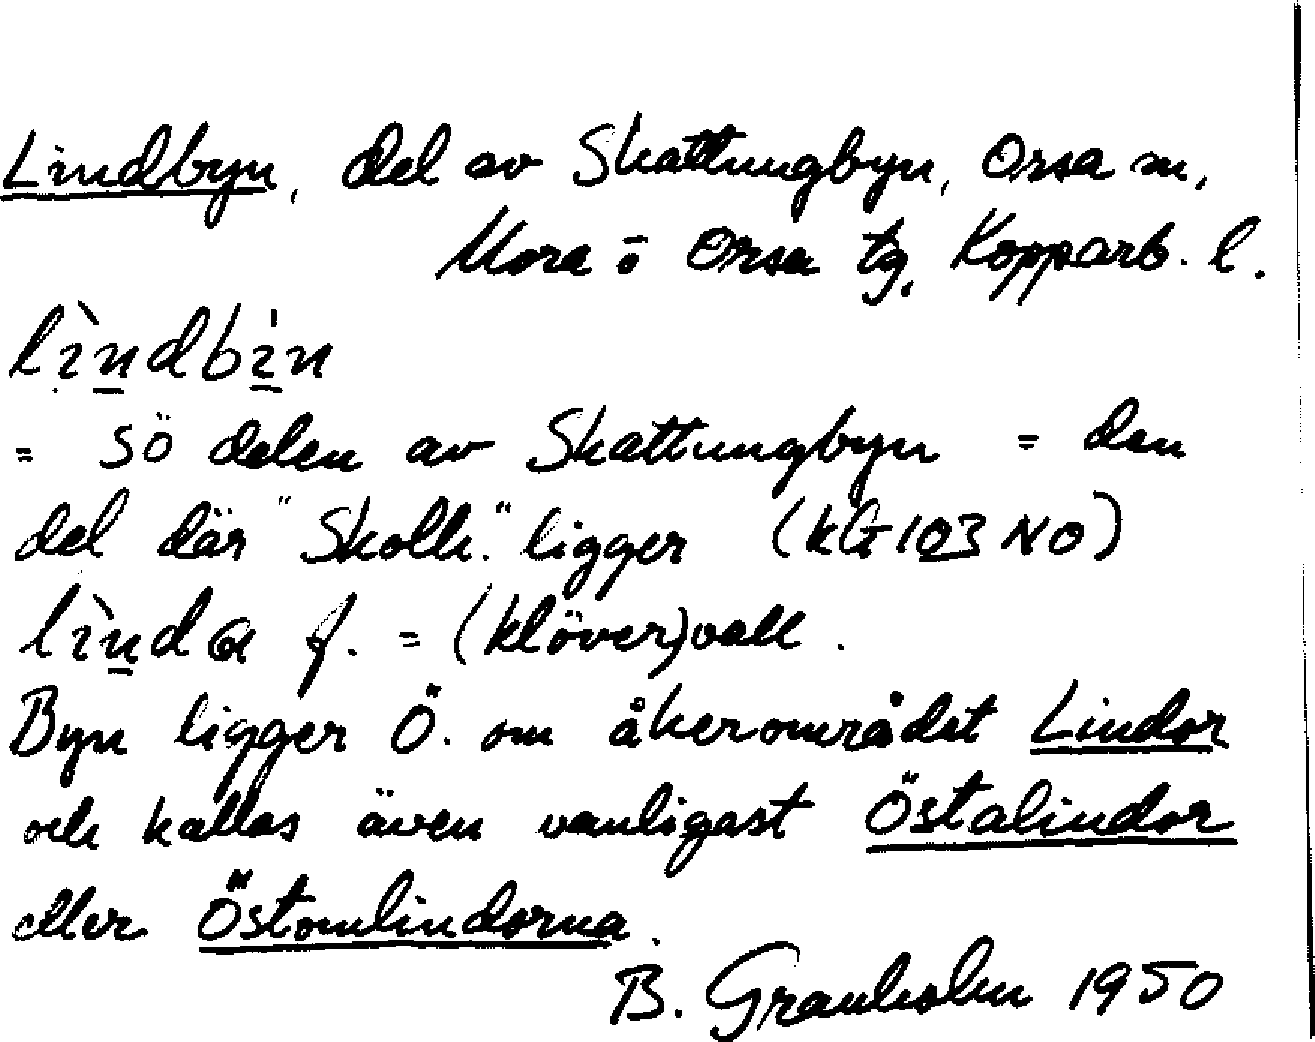 Lindbyn, del av Skattungbyn, Orsa sn,
Mora o Orsa tg. Kopparb. l.
lìndbín
= sö delen av Skattungbyn = den
del där "Skolh." ligger (kbl 103 NO)
lìnda f. = (klöver)vall.
Byn ligger Ö. om åkerområdet Lindor
och kallas även vanligast Östalindor
eller Östomlindorna.
B. Granholm 1950